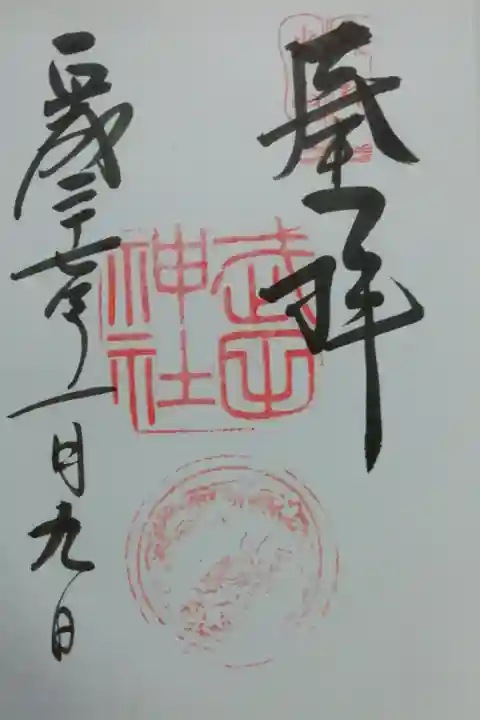 奉拝
武田
神社
平成二十七年一月九日